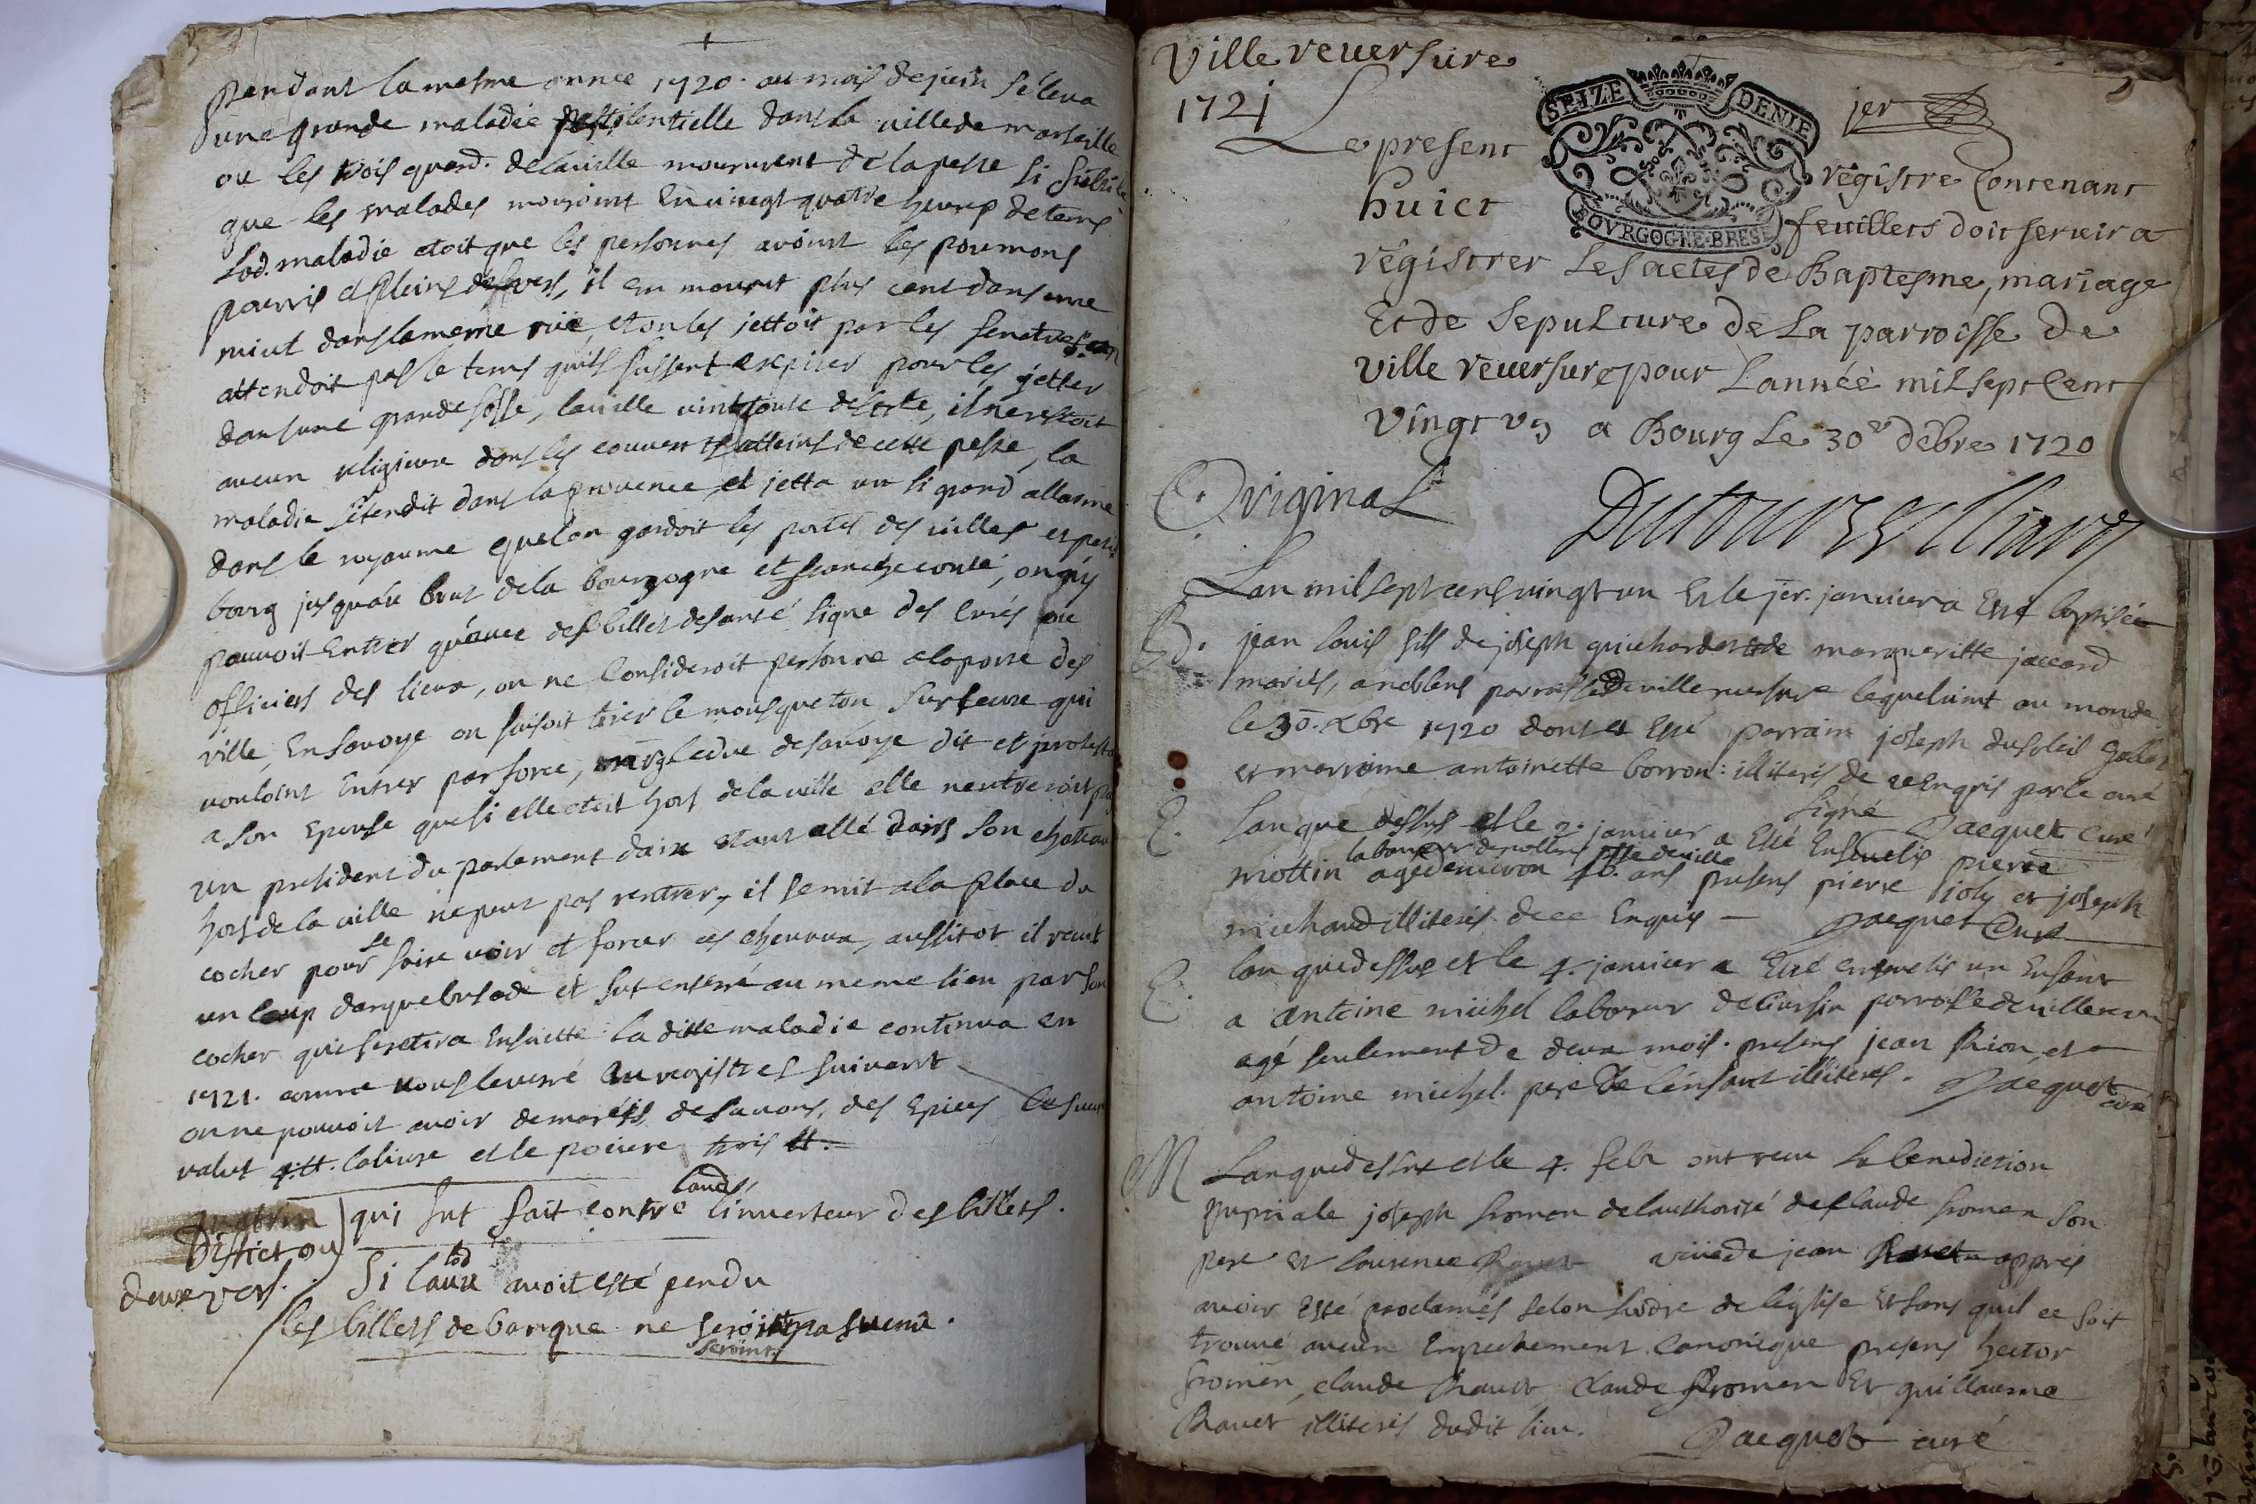 pendant la mesme année 1720. au mois de juin s'éleva
une grande maladie pestilentielle dans la ville de marseille
ou les trois quard. de la ville moururent de la peste si subite
que les malades mouroint en vingt quatre heures de tems
lad. maladie etoit que les personnes avoint les poumons
pourris et pleins de vers, il en mourut plus cent dans une
nuit dans la meme rüe, et on les jettoit par les fenetres. on
attendoit pas le tems quils fussent expirer pour les jetter
dans une grande fosse, la ville vint toute deserte, il ne restoit
aucun religieux dans les couvents atteins de cette peste, la
maladie s'étendit dans la provence, et jetta un si grand allarme
dans le royaume que lon gardoit les portes des villes et petit
bourg jusquau bout de la bourgogne et franche conté, on n'y
pouvoit entrer qu'avec des billet de santé signe des curés ou
officiers des lieux, on ne consideroit personne a la porte des
ville, En savoye on faisoit tirer le mousqueton sur ceux qui
vouloint entrer par force, le duc de savoye dit et protesta
a son Epouse que si elle etoit hors de la ville elle n'entreroit pas
un president du parlement daix etant allé dans son chateau
hors de la ville ne peut pas rentrer, il se mit a la place du
cocher pour se faire voir et forcer ces chevaux, aussitot il reçut
un coup darquebusade et fut enterré au meme lieu par son
cocher qui se retira Ensuitte la ditte maladie continua en
1721. comme vous le verré au registres suivant
on ne pouvoit avoir de marseille de savons, des Epices le sucre
valut 4.tt. la livre et le poivre trois tt.
qui fut fait contre lauds l'inventeur des billets.
Distict ou
deux vers. Si laud avoit esté pendu
les billets de banque ne seroint pas venu.
seroint
Ville reversure
1721
SEIZE DENIE
BOVRGOGNE·BRESE
jer
Le present registre Contenant
huict feuillets doit servir a
régistrer Les actes de Baptesme, mariage
Et de Sepulture de La parroisse de
ville reversure pour Lannéé mil sept Cent
vingt vn a Bourg Le 30e débre 1720
Original
Lan mil sept cens vingt un et le jer. janvier a Esté baptisé
B. jean louis fils de joseph guichardet de margueritte jaccard
mariés, a noblens parroisse de ville reversure lequel vint au monde
le 30. xbre 1720 dont a Esté parrain joseph dusoleil
et marraine antoinette borron: illiterés de ce Enquis par le curé
Signé Jacquet Curé
E. Lan que dessus et le 2. janvier a Esté Ensevelis pierre
laboureur de nollens psse de ville
miottin agé denviron 40. ans presens pierre joly et joseph
michaud illiterés de ce Enquis — Jacquet Curé
E. lan que dessus et le 4. janvier a Esté ensevelis un Enfant
a antoine michel laboreur de parroisse de ville rever
agé seulement de deux mois. presens jean Rion et
antoine michel. pere de l'enfant illiteres. Jacquet
curé
M Lan que dessus et le 4. febr ont receu la benediction
nuptiale joseph fromen de lauthorité de claude fromen son
pere et laurence Ravet veüe de jean Ravet appres
avoir Esté proclamés selon l'ordre de l'église Et sans quil ce soit
trouvé aucun Empechement Canonique presens hector
fromen, claude Ravet claude fromen Et guillaume
Ravet illiterés dudit lieu.
Jacquet curé